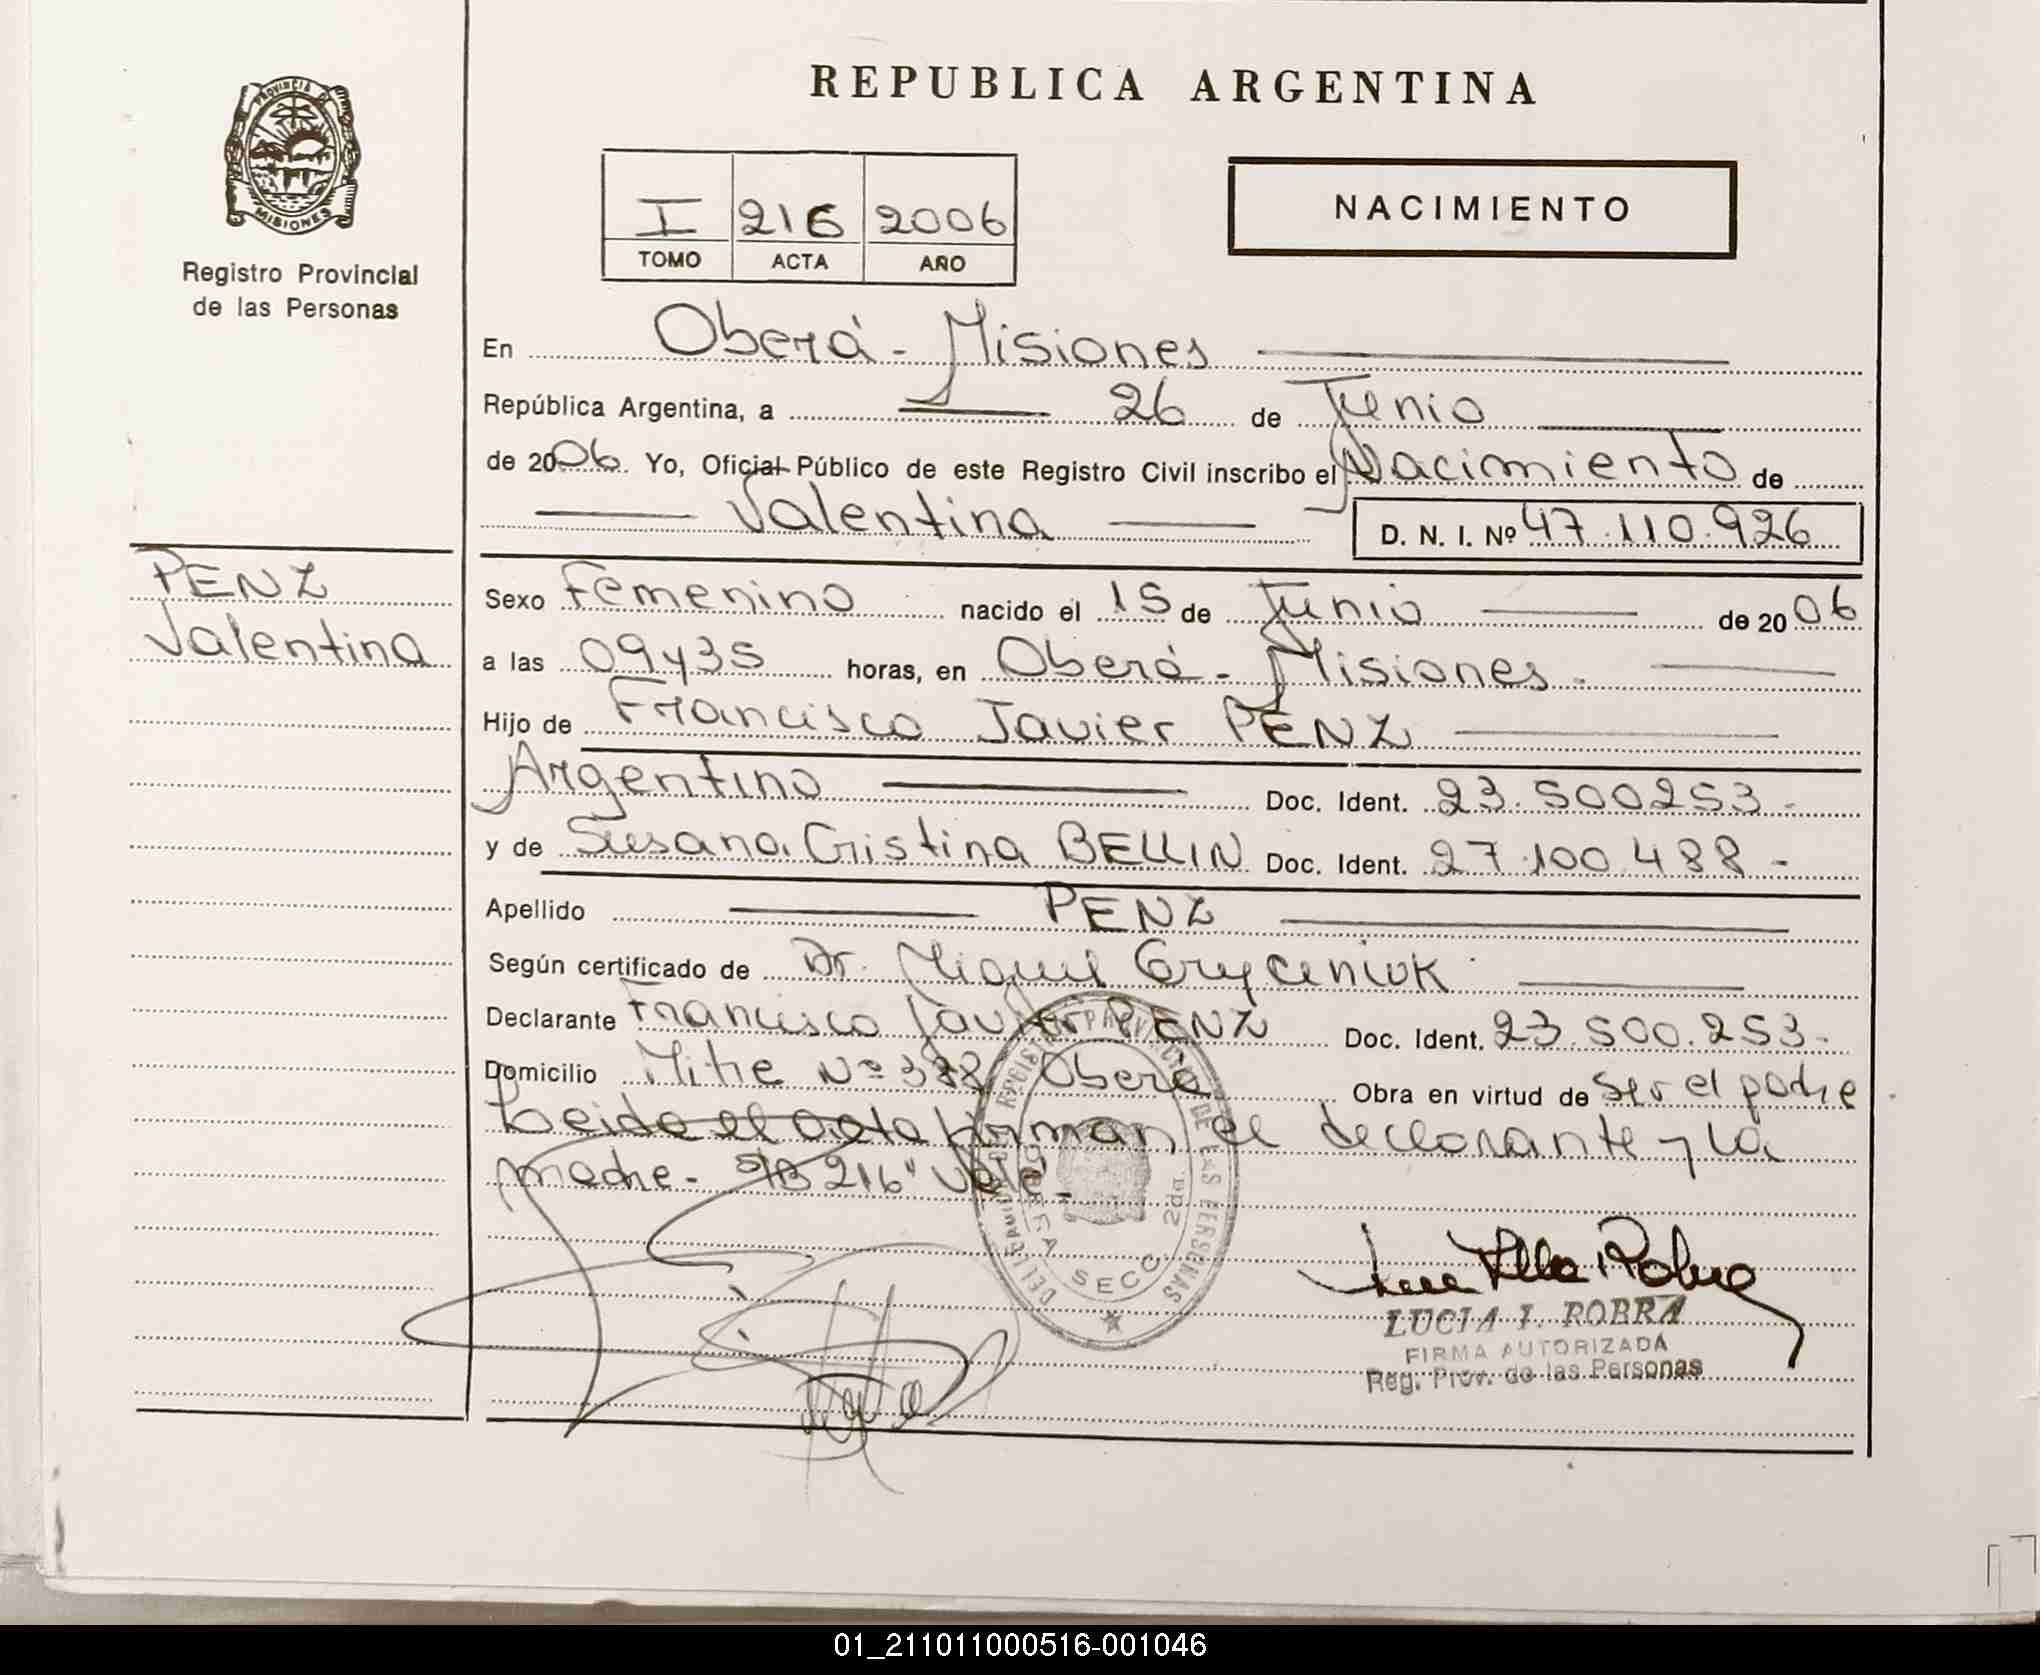 REPUBLICA ARGENTINA
PROVINCIA DE
MISIONES
Registro Provincial
de las Personas
I 216 2006
TOMO ACTA AÑO
NACIMIENTO
En Oberá - Misiones
República Argentina, a 26 de Junio
de 2006. Yo, Oficial Público de este Registro Civil inscribo el Nacimiento de
Valentina D. N. I. Nº 47.110.926
PENZ
Valentina
Sexo Femenino nacido el 15 de Junio de 2006
a las 09y35 horas, en Oberá - Misiones -
Hijo de Francisco Javier PENZ
Argentino Doc. Ident. 23.500253-
y de Susana Cristina BELLIN Doc. Ident. 27.100.488-
Apellido PENZ
Según certificado de Dr. Miguel
Declarante Francisco Javier PENZ Doc. Ident. 23.500.253-
Domicilio Mitre Nº 388 Oberá Obra en virtud de ser el padre
Leida el acta firman el declarante y la
madre - S/B 216 "Vale"-
REGISTRO PROVINCIAL DE LAS PERSONAS
SECC. 2da.
LUCIA I. ROBRA
FIRMA AUTORIZADA
Reg. Prov. de las Personas
01_211011000516-001046